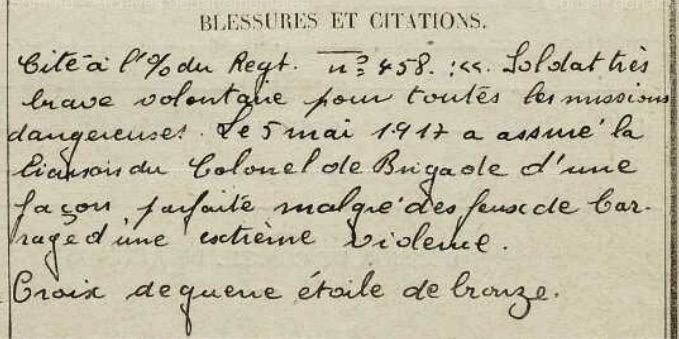 BLESSURES ET CITATIONS.
Cité à l'% du Regt. n? 458. :<<. Soldat très
brave volontaire pour toutes les missions
dangereuses. Le 5 mai 1917 a assuré la
liaison du Colonel de Brigade d'une
façon parfaite malgré des feux de bar-
rage d'une extrème violence.
Croix de guerre étoile de bronze.